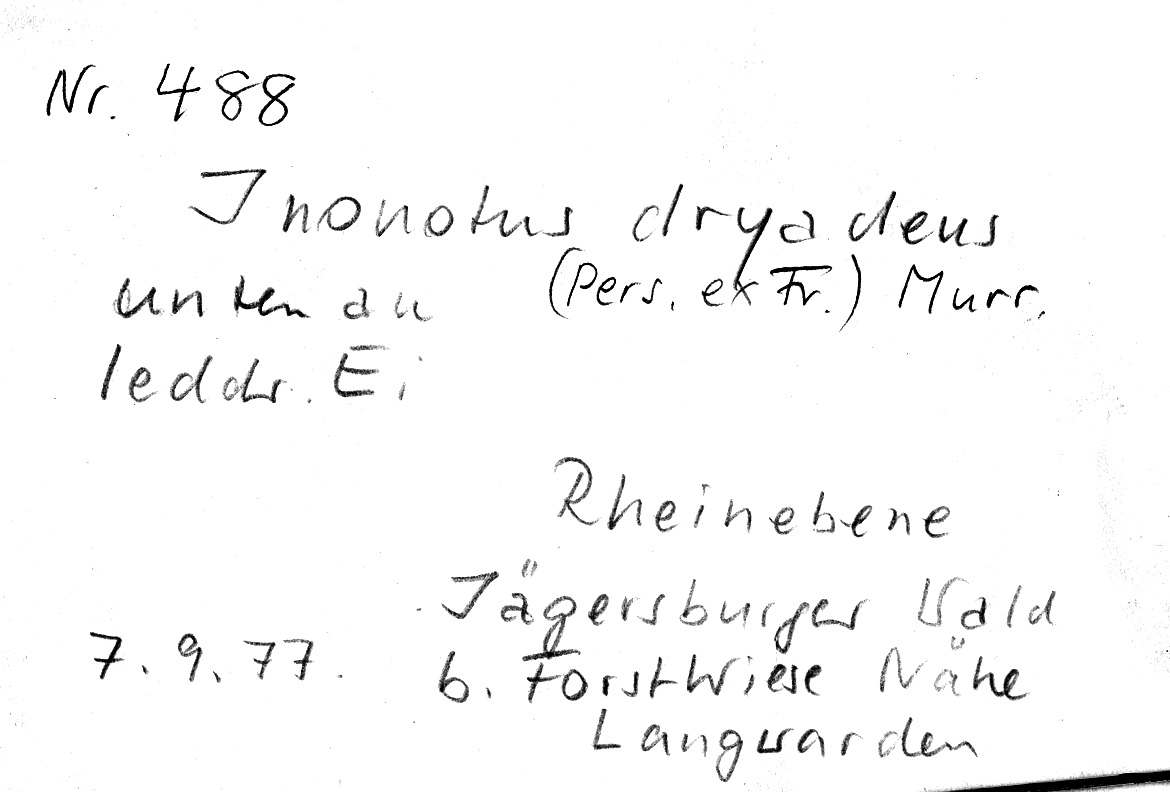 Nr. 488
Inonotus dryadeus
(Pers. ex Fr.) Murr.
unten an
lebdr. Ei
Rheinebene
Jägersburger Wald
7.9.77.
b. Forstwiese Nähe
Langwarden